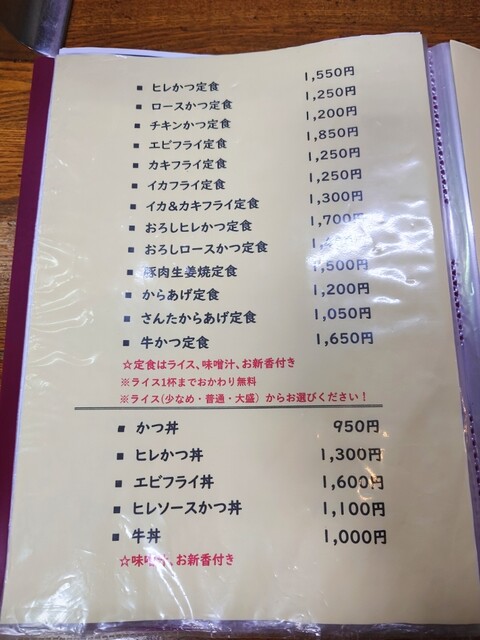 ■ ヒレかつ定食 1,550円
■ ロースかつ定食 1,250円
■ チキンかつ定食 1,200円
■ エビフライ定食 1,850円
■ カキフライ定食 1,250円
■ イカフライ定食 1,250円
■ イカ&カキフライ定食 1,300円
■ おろしヒレかつ定食 1,700円
■ おろしロースかつ定食
■ 豚肉生姜焼定食 1,500円
■ からあげ定食 1,200円
■ さんたからあげ定食 1,050円
■ 牛かつ定食 1,650円
☆定食はライス、味噌汁、お新香付き
※ライス1杯までおかわり無料
※ライス(少なめ・普通・大盛) からお選びください！
■ かつ丼 950円
■ ヒレかつ丼 1,300円
■ エビフライ丼 1,600円
■ ヒレソースかつ丼 1,100円
■ 牛丼 1,000円
☆味噌汁、お新香付き